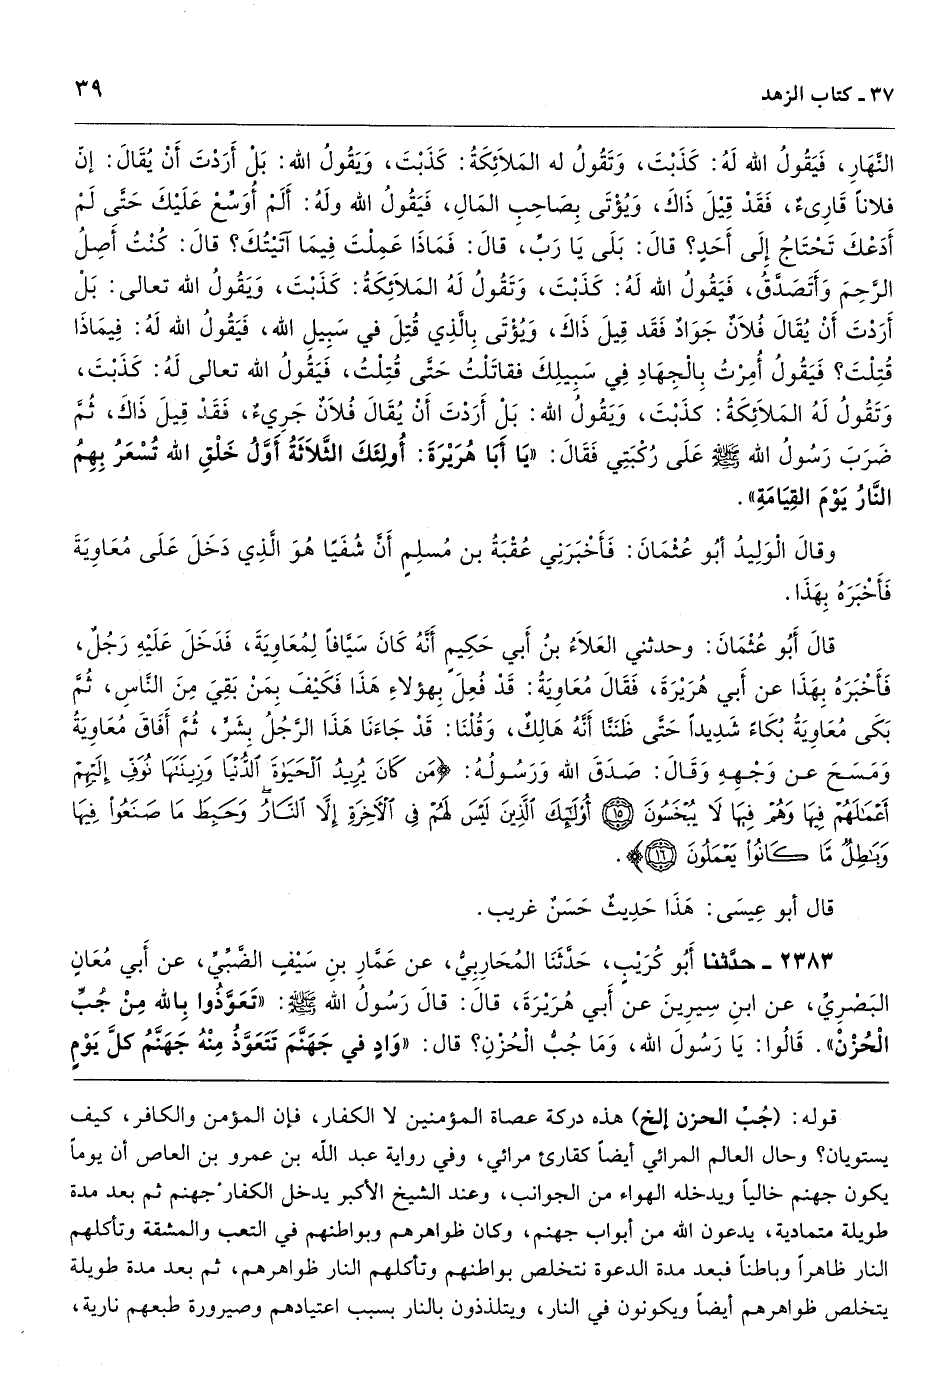 ٣٧ ـ كتاب الزهد ٣٩
النَّهَارِ، فَيَقُولُ الله لَهُ: كَذَبْتَ، وَتَقُولُ له المَلاَئِكَةُ: كَذَبْتَ، وَيَقُولُ الله: بَلْ أَرَدْتَ أَنْ يُقَالَ: إنّ
فلاناً قَارِىءٌ، فَقَدْ قِيلَ ذَاكَ، وَيُؤْتَى بِصَاحِبِ المَالِ، فَيَقُولُ الله ولَهُ: أَلَمْ أُوَسِّعْ عَلَيْكَ حَتَّى لَمْ
أَدَعْكَ تَحْتَاجُ إِلَى أَحَدٍ؟ قالَ: بَلَى يا رَبِّ، قالَ: فَمَاذَا عَمِلْتَ فِيمَا آتَيْتُكَ؟ قالَ: كُنْتُ أَصِلُ
الرَّحِمَ وَأَتَصَدَّقُ، فَيَقُولُ الله لَهُ: كَذَبْتَ، وَتَقُولُ لَهُ المَلاَئِكَةُ: كَذَبْتَ، وَيَقُولُ الله تعالى: بَلْ
أَرَدْتَ أَنْ يُقَالَ فُلاَنٌ جَوَادٌ فَقَد قِيلَ ذَاكَ، وَيُؤْتَى بِالَّذِي قُتِلَ في سَبِيلِ الله، فَيَقُولُ الله لَهُ: فِيمَاذَا
قُتِلْتَ؟ فَيَقُولُ أُمِرْتُ بِالْجِهَادِ فِي سَبِيلِكَ فقاتَلْتُ حَتَّى قُتِلْتُ، فَيَقُولُ الله تعالى لَهُ: كَذَبْتَ،
وَتَقُولُ لَهُ المَلاَئِكَةُ: كذَبْتَ، ويَقُولُ الله: بَلْ أَرَدْتَ أَنْ يُقَالَ فُلاَنٌ جَرِيءٌ، فَقَدْ قِيلَ ذَاكَ، ثُمَّ
ضَرَبَ رَسُولُ الله ﷺ عَلَى رُكْبَتِي فَقَالَ: «يَا أَبَا هُرَيْرَةَ: أُولئِكَ الثَّلاَثَةُ أَوَّلُ خَلْقِ الله تُسْعَرُ بِهِمُ
النَّارُ يَوْمَ القِيَامَةِ».
وقالَ الْوَلِيدُ أبُو عُثْمَانَ: فَأَخْبَرَنِي عُقْبَةُ بن مُسلِمٍ أَنَّ شُفَيًّا هُوَ الَّذِي دَخَلَ عَلَى مُعَاوِيَةَ
فَأَخْبَرَهُ بِهَذَا.
قالَ أَبُو عُثْمَانَ: وحدثني العَلاَءُ بنُ أبي حَكِيمٍ أَنَّهُ كَانَ سَيَّافاً لِمُعَاوِيَةَ، فَدَخَلَ عَلَيْهِ رَجُلٌ،
فَأَخْبَرَهُ بِهَذَا عن أبي هُرَيْرَةَ، فَقَالَ مُعَاوِيَةُ: قَدْ فُعِلَ بِهؤلاءِ هَذَا فَكَيْفَ بِمَنْ بَقِيَ مِنَ النَّاسِ، ثُمَّ
بَكَى مُعَاوِيَةُ بُكَاءً شَدِيداً حَتَّى ظَنَنَّا أَنَّهُ هَالِكٌ، وَقُلْنَا: قَدْ جَاءَنَا هَذَا الرَّجُلُ بِشَرٍّ، ثُمَّ أَفَاقَ مُعَاوِيَةُ
وَمَسَحَ عن وَجْهِهِ وَقَالَ: صَدَقَ الله وَرَسُولُهُ: ﴿مَن كَانَ يُرِيدُ الْحَيَوٰةَ الدُّنْيَا وَزِينَتَهَا نُوَفِّ إِلَيْهِمْ
أَعْمَٰلَهُمْ فِيهَا وَهُمْ فِيهَا لَا يُبْخَسُونَ ﴿١٥﴾ أُوْلَٰٓئِكَ ٱلَّذِينَ لَيْسَ لَهُمْ فِي ٱلْأَخِرَةِ إِلَّا ٱلنَّارُ وَحَبِطَ مَا صَنَعُوا۟ فِيهَا
وَبَٰطِلٌ مَّا كَانُوا۟ يَعْمَلُونَ ﴿١٦﴾﴾.
قال أبو عِيسَى: هَذَا حَدِيثٌ حَسَنٌ غريب.
٢٣٨٣ ـ حدَّثنا أَبُو كُرَيْبٍ، حَدَّثَنَا المُحَارِبيُّ، عن عَمَّارِ بنِ سَيْفٍ الضَّبِّيِّ، عن أَبي مُعَانٍ
البَصْرِيِّ، عن ابنِ سِيرِينَ عن أبي هُرَيْرَةَ، قالَ: قالَ رَسُولُ الله ﷺ: «تَعَوَّذُوا بِالله مِنْ جُبِّ
الْحُزْنْ». قَالُوا: يَا رَسُولَ الله، وَمَا جُبُّ الْحُزْنِ؟ قال: «وَادٍ في جَهَنَّمَ تَتَعَوَّذُ مِنْهُ جَهَنَّمُ كلَّ يَوْمٍ
قوله: (جُبّ الحزن إلخ) هذه دركة عصاة المؤمنين لا الكفار، فإن المؤمن والكافر، كيف
يستويان؟ وحال العالم المرائي أيضاً كقارئ مرائي، وفي رواية عبد الله بن عمرو بن العاص أن يوماً
يكون جهنم خالياً ويدخله الهواء من الجوانب، وعند الشيخ الأكبر يدخل الكفار جهنم ثم بعد مدة
طويلة متمادية، يدعون الله من أبواب جهنم، وكان ظواهرهم وبواطنهم في التعب والمشقة وتأكلهم
النار ظاهراً وباطناً فبعد مدة الدعوة نتخلص بواطنهم وتأكلهم النار ظواهرهم، ثم بعد مدة طويلة
يتخلص ظواهرهم أيضاً ويكونون في النار، ويتلذذون بالنار بسبب اعتيادهم وصيرورة طبعهم نارية،